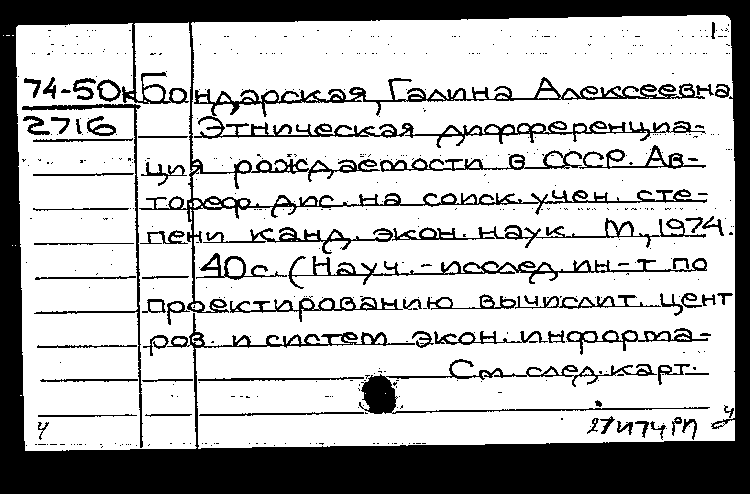 1
74-50к Бондарская, Галина Алексеевна
2716 Этническая дифференциа-
ция рождаемости в СССР. Ав-
тореф. дис. на соиск. учен. сте-
пени канд. экон. наук. М., 1974.
40с. (Науч.-исслед. ин-т по
проектированию вычислит. цент
ров. и систем экон. информа-
См. след. карт.
ч